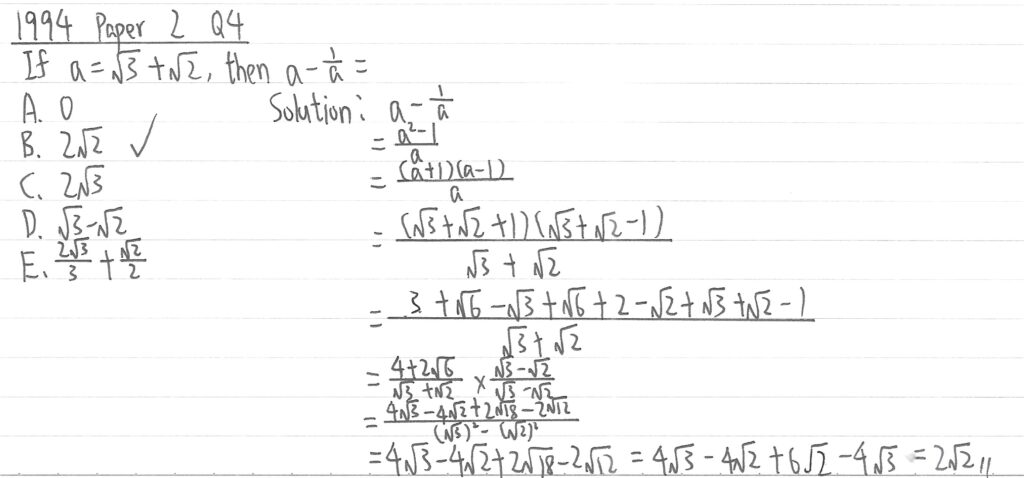 1994 Paper 2 Q4
If a = √3 + √2, then a - 1/a =
A. 0
B. 2√2 ✓
C. 2√3
D. √3-√2
E. 2√3/3 + √2/2
Solution: a - 1/a
= (a²-1)/a
= (a+1)(a-1)/a
= (√3+√2+1)(√3+√2-1)/(√3+√2)
= (3+√6-√3+√6+2-√2+√3+√2-1)/(√3+√2)
= (4+2√6)/(√3+√2) × (√3-√2)/(√3-√2)
= (4√3-4√2+2√18-2√12)/((√3)²-(√2)²)
= 4√3-4√2+2√18-2√12 = 4√3-4√2+6√2-4√3 = 2√2 //